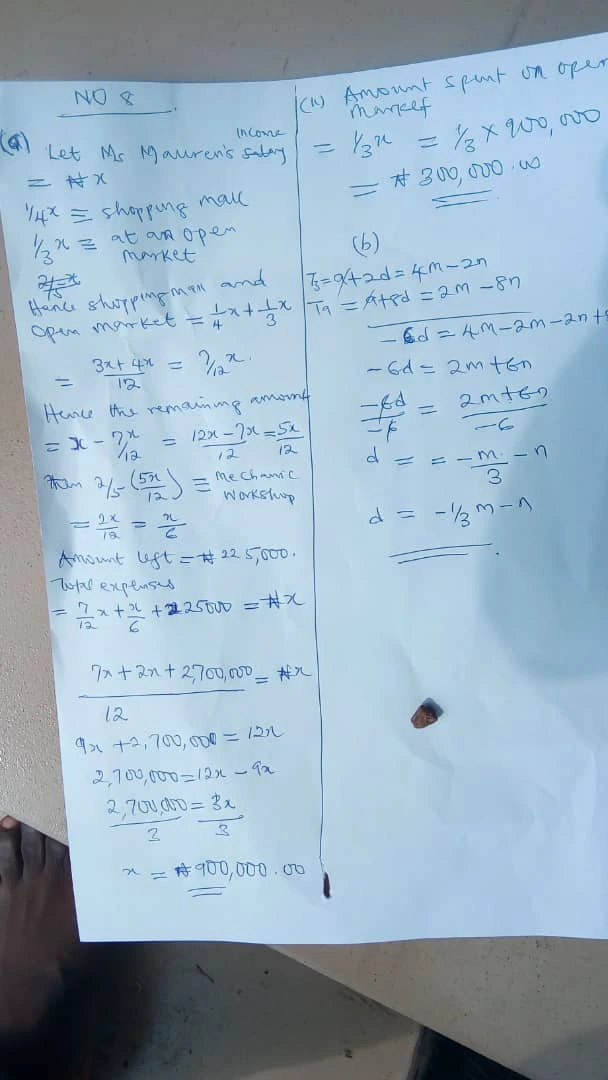 NO 8
(a) Let Ms Mauren's salary Income
= ₦x
1/4x ≡ shopping mall
1/3x ≡ at an open
market
Hence shopping mall and
open market = 1/4x + 1/3x
= 3x+4x/12 = 7/12x.
Hence the remaining amount
= x - 7x/12 = 12x-7x/12 = 5x/12
then 2/5(5x/12) ≡ mechanic
workshop
= 2x/12 = x/6
Amount left = ₦225,000.
Total expenses
= 7/12x + x/6 + 225000 = ₦x
7x+2x+2,700,000/12 = ₦x
9x+2,700,000 = 12x
2,700,000=12x-9x
2,700,000/3 = 3x/3
x = ₦900,000.00
(ii) Amount spent on open
market
= 1/3x = 1/3 × 900,000
= ₦300,000.00
(b)
T3=a+2d=4m-2n
T9=a+8d=2m-8n
-6d=4m-2m-2n+8
-6d=2m+6n
-6d/-6 = 2m+6n/-6
d = = -m/3 - n
d = -1/3m-n